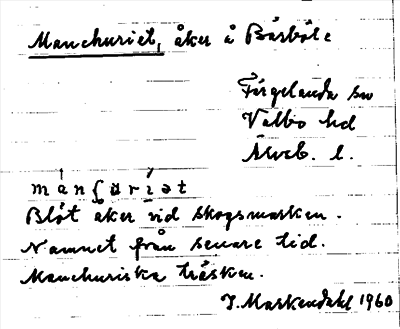 Manchuriet, åker å Bärböle
Färgelanda sn
Valbo hd
Älvsb. l.
Blöt åker vid skogsmarken.
Namnet från senare tid.
Manchuriska träsken.
J. Markendahl 1960